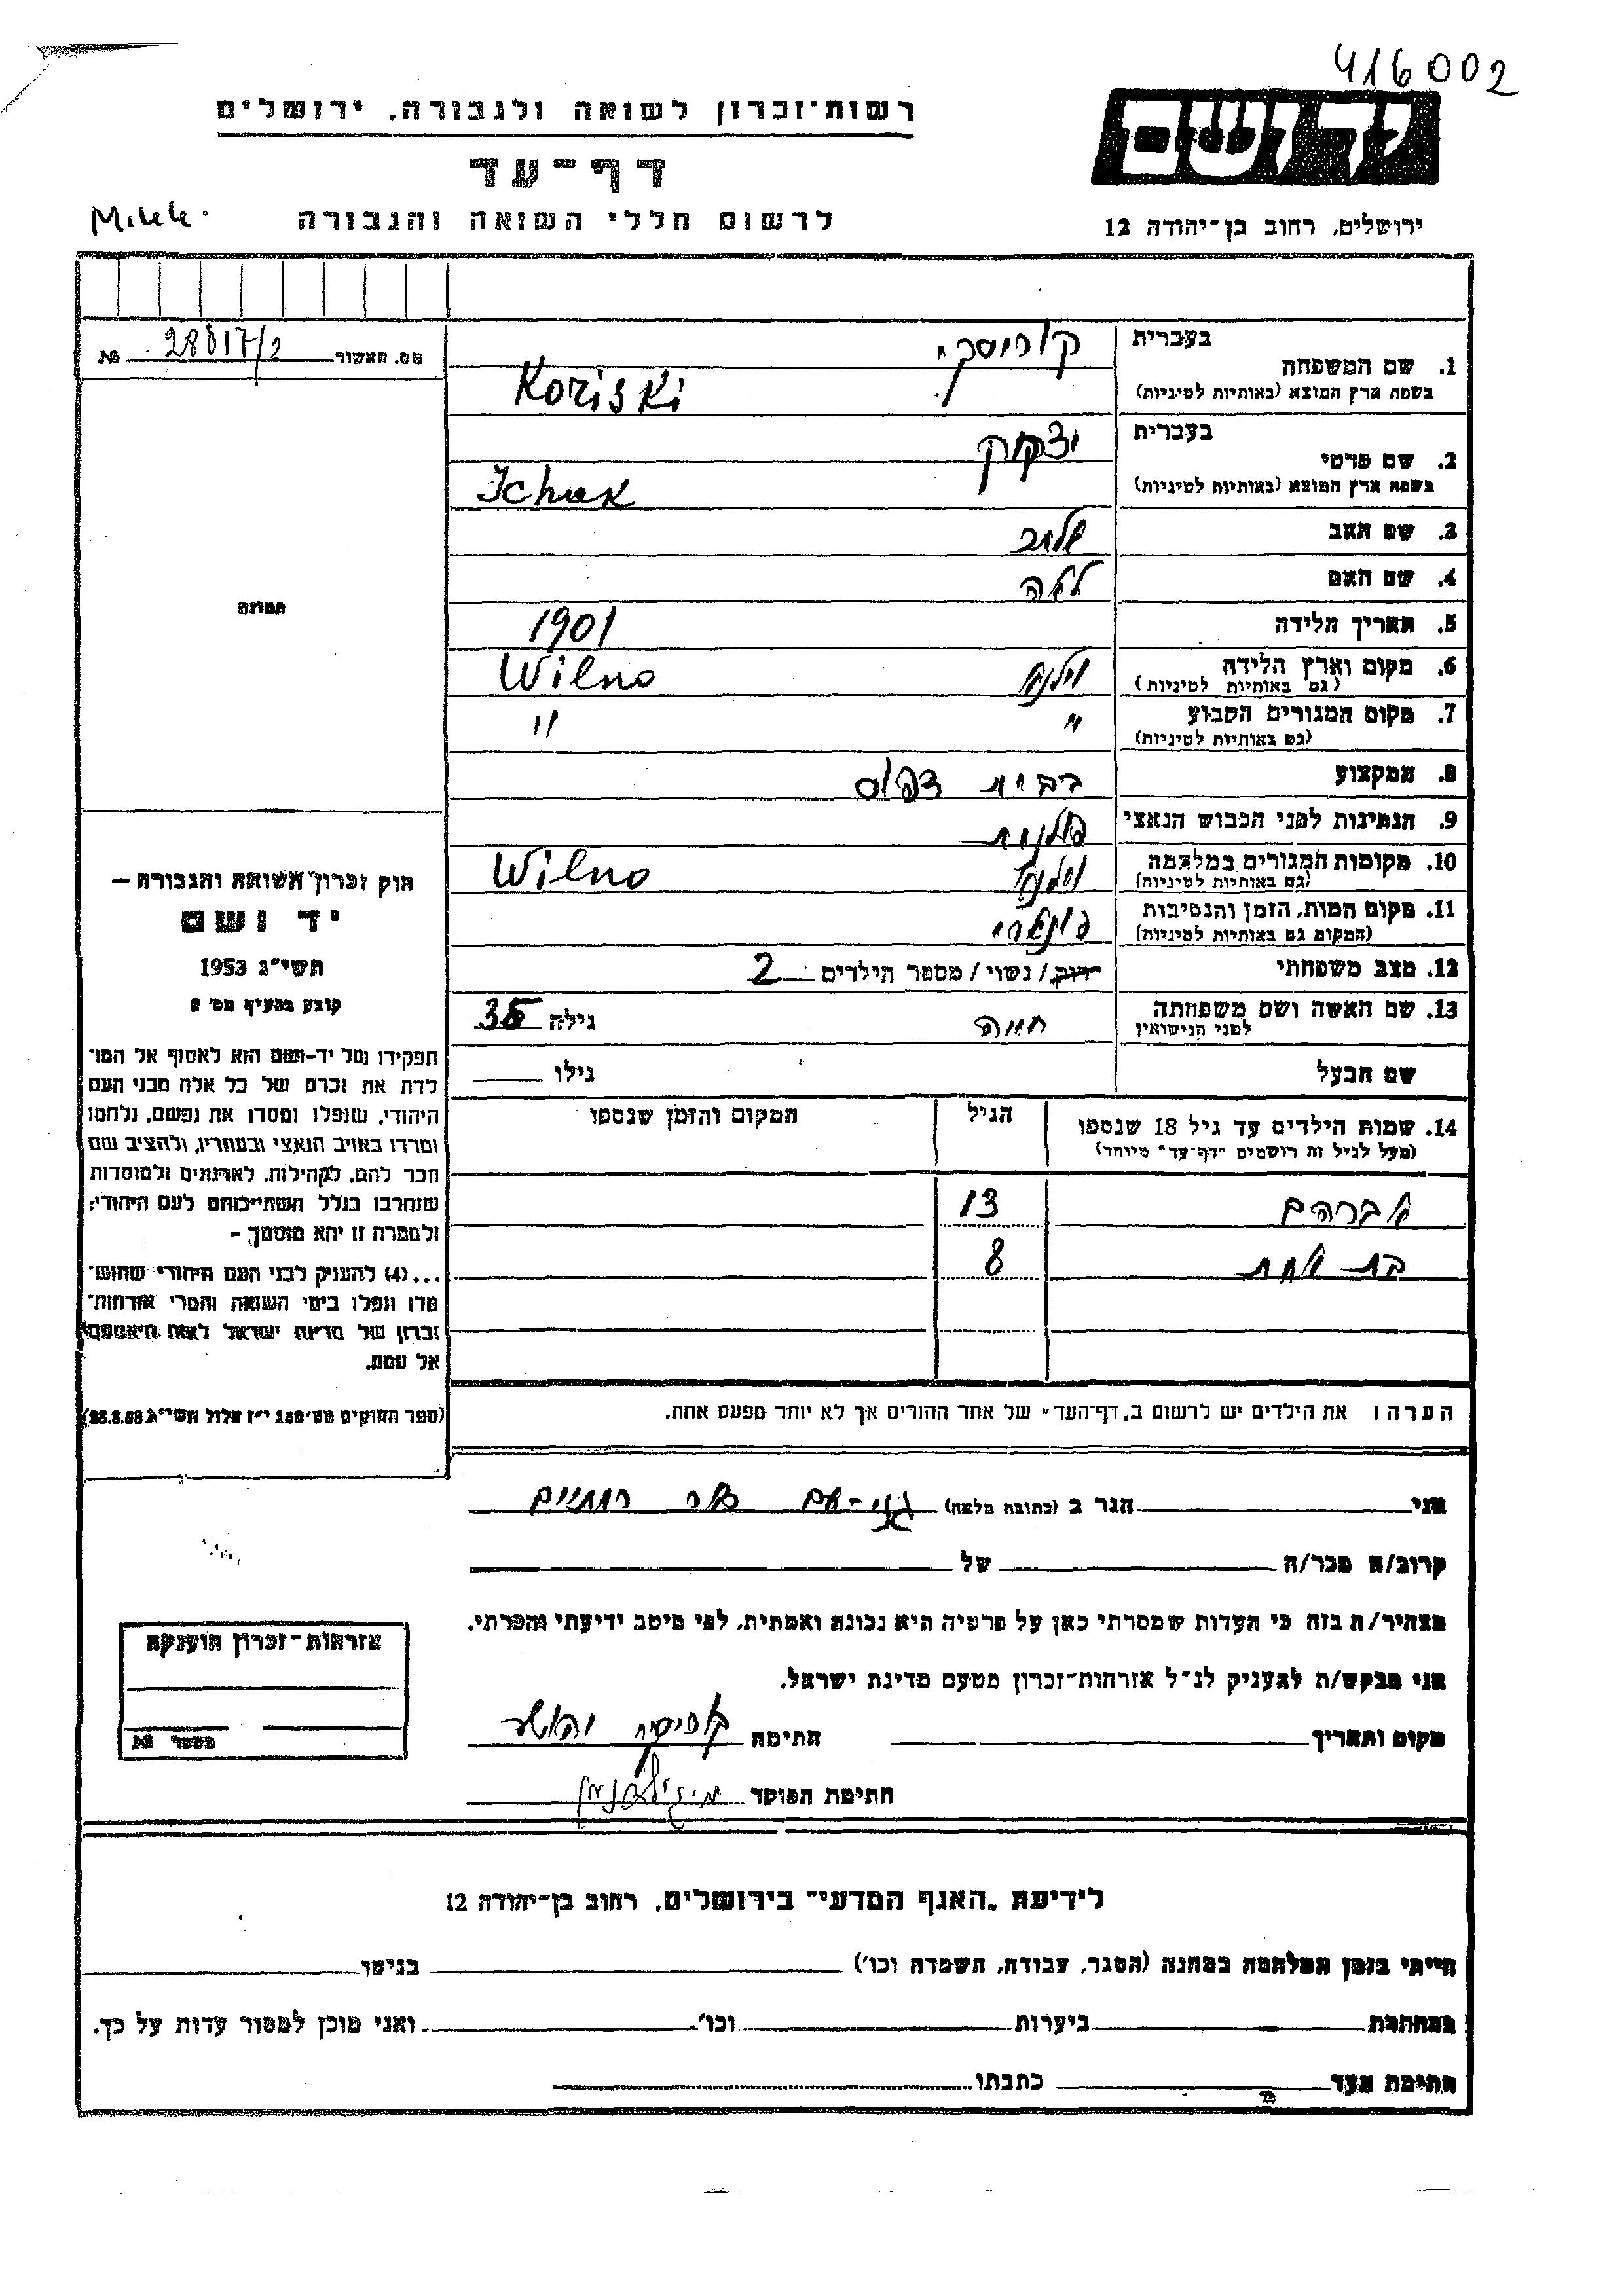 416002
רשות־זכרון לשואה ולגבורה, ירושלים
יד ושם
דף־עד
לרשום חללי השואה והגבורה
ירושלים, רחוב בן־יהודה 12
מס. תאשור 28017/2 №
תמונה
1. שם המשפחה
בעברית קוריסקי
בשפת ארץ המוצא (באותיות לטיניות) Koriski
2. שם פרטי
בעברית יצחק
בשפת ארץ המוצא (באותיות לטיניות) Ichak
3. שם האב שלמה
4. שם האם לאה
5. תאריך הלידה 1901
6. מקום וארץ הלידה וילנה Wilno
(גם באותיות לטיניות)
7. מקום המגורים הקבוע " "
(גם באותיות לטיניות)
8. המקצוע בבית דפוס
9. הנתינות לפני הכבוש הנאצי פולנית
10. מקומות המגורים במלחמה וילנה Wilno
(גם באותיות לטיניות)
11. מקום המות, הזמן והנסיבות פונארי
(המקום גם באותיות לטיניות)
12. מצב משפחתי רוק/נשוי/מספר הילדים 2
13. שם האשה ושם משפחתה חוה גילה 35
לפני הנישואין
שם הבעל גילו
14. שמות הילדים עד גיל 18 שנספו הגיל המקום והזמן שנספו
(מעל לגיל זה רושמים "דף־עד" מיוחד)
אברהם 13
בת אחת 8
הערה: את הילדים יש לרשום ב„דף־העד" של אחד ההורים אך לא יותר מפעם אחת.
חוק זכרון השואה והגבורה —
יד ושם
תשי"ג 1953
קובע בסעיף מס' 2
תפקידו של יד־ושם הוא לאסוף אל המו־
לדת את זכרם של כל אלה מבני העם
היהודי, שנפלו ומסרו את נפשם, נלחמו
ומרדו באויב הנאצי ובעוזריו, ולהציב שם
וזכר להם, לקהילות, לארגונים ולמוסדות
שנחרבו בגלל השתייכותם לעם היהודי;
ולמטרה זו יהא מוסמך —
...(4) להעניק לבני העם היהודי שהוש־
מדו ונפלו בימי השואה והמרי אזרחות־
זכרון של מדינת ישראל לאות היאספם
אל עמם.
(ספר החוקים מס' 132 י"ז אלול תשי"ג 28.8.53)
אני הגר ב (כתובת מלאה) גני-עם
קרוב/ה מכר/ה של
מצהיר/ה בזה כי העדות שמסרתי כאן על פרטיה היא נכונה ואמתית, לפי מיטב ידיעתי והכרתי.
אני מבקש/ת להעניק לנ"ל אזרחות־זכרון מטעם מדינת ישראל.
מקום ותאריך חתימה קוריסקי
חתימת הפוקד
אזרחות־זכרון הוענקה
מספר №
לידיעת „האגף המדעי" בירושלים, רחוב בן־יהודה 12
הייתי בזמן המלחמה במחנה (הסגר, עבודה, השמדה וכו') בגיטו
במחתרת ביערות וכו'. ואני מוכן למסור עדות על כך.
חתימת העד כתבתו